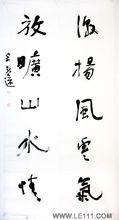 激揚風雲氣
放曠山水情
WWW.LE111.COM